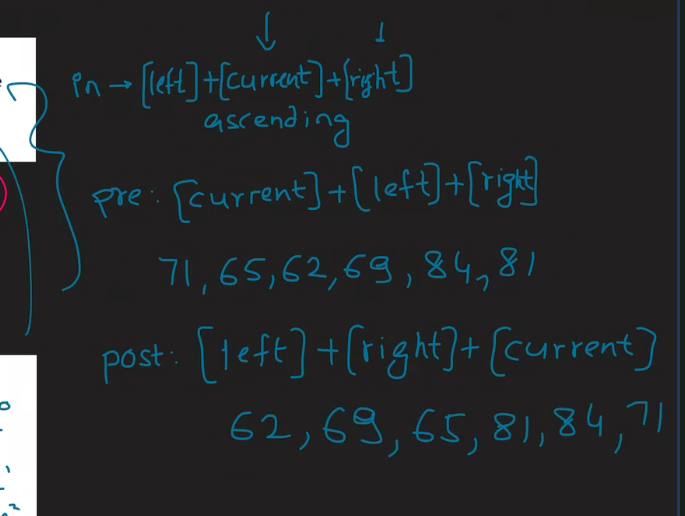 in → [left]+[current]+[right]
ascending
pre: [current]+[left]+[right]
71, 65, 62, 69, 84, 81
post: [left]+[right]+[current]
62, 69, 65, 81, 84, 71